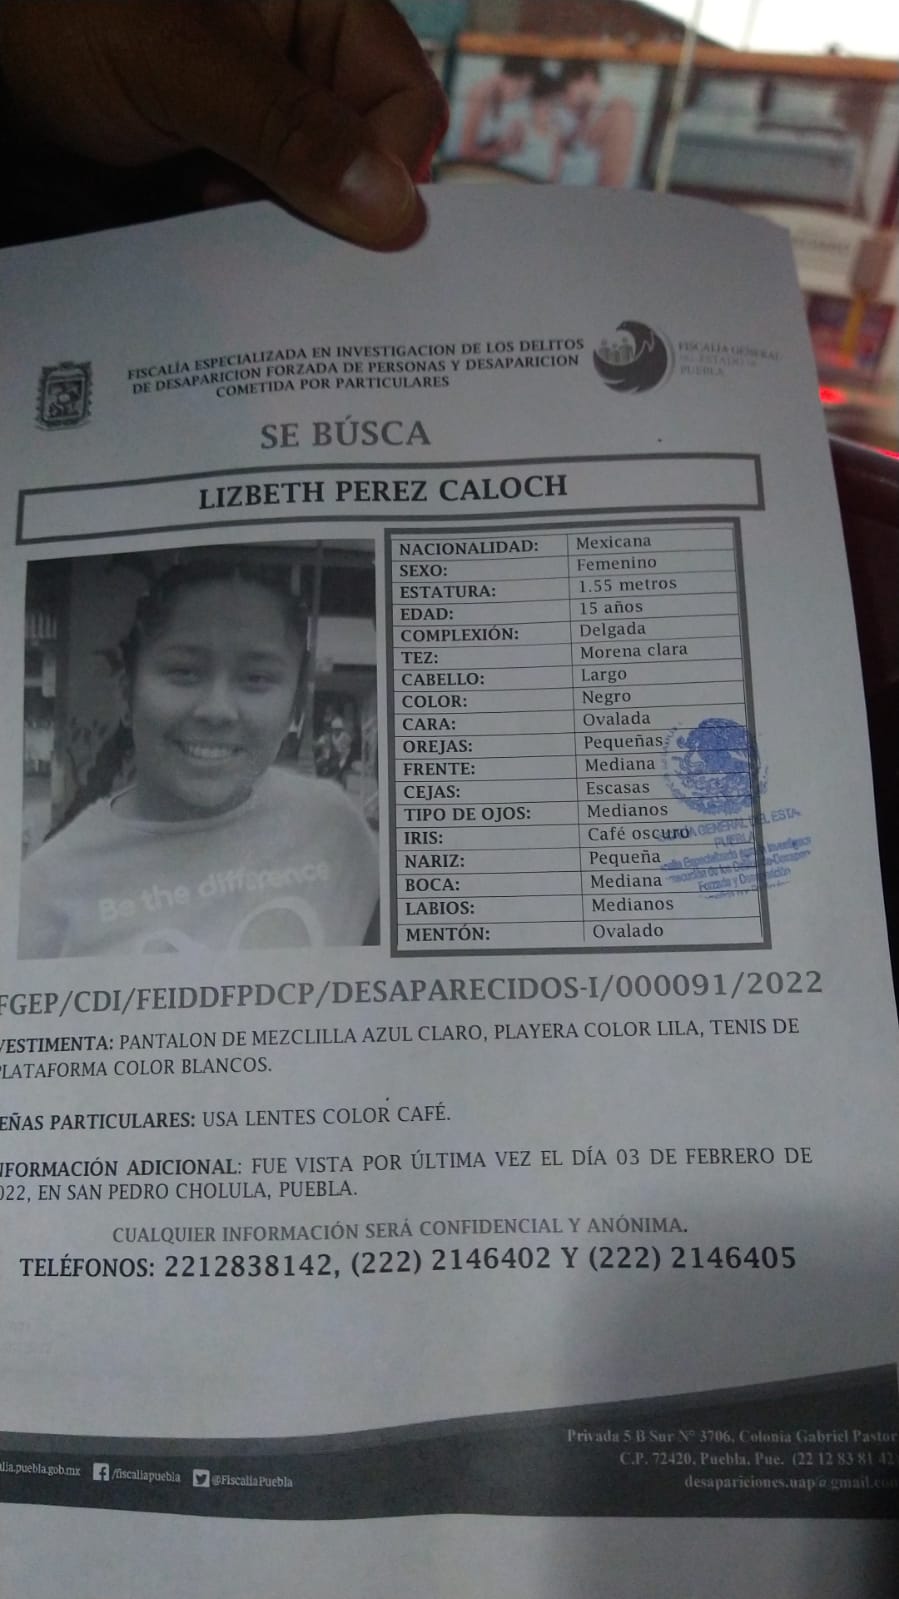 FISCALÍA ESPECIALIZADA EN INVESTIGACION DE LOS DELITOS
DE DESAPARICION FORZADA DE PERSONAS Y DESAPARICION
COMETIDA POR PARTICULARES
FISCALÍA GENERAL
DEL ESTADO DE
PUEBLA
SE BÚSCA
LIZBETH PEREZ CALOCH
NACIONALIDAD: Mexicana
SEXO: Femenino
ESTATURA: 1.55 metros
EDAD: 15 años
COMPLEXIÓN: Delgada
TEZ: Morena clara
CABELLO: Largo
COLOR: Negro
CARA: Ovalada
OREJAS: Pequeñas
FRENTE: Mediana
CEJAS: Escasas
TIPO DE OJOS: Medianos
IRIS: Café oscuro
NARIZ: Pequeña
BOCA: Mediana
LABIOS: Medianos
MENTÓN: Ovalado
Be the difference
GENERAL DEL ESTA
PUEBLA
Forzada y
FGEP/CDI/FEIDDFPDCP/DESAPARECIDOS-I/000091/2022
VESTIMENTA: PANTALON DE MEZCLILLA AZUL CLARO, PLAYERA COLOR LILA, TENIS DE
PLATAFORMA COLOR BLANCOS.
EÑAS PARTICULARES: USA LENTES COLOR CAFÉ.
NFORMACIÓN ADICIONAL: FUE VISTA POR ÚLTIMA VEZ EL DÍA 03 DE FEBRERO DE
022, EN SAN PEDRO CHOLULA, PUEBLA.
CUALQUIER INFORMACIÓN SERÁ CONFIDENCIAL Y ANÓNIMA.
TELÉFONOS: 2212838142, (222) 2146402 Y (222) 2146405
Privada 5 B Sur N° 3706, Colonia Gabriel Pastor
C.P. 72420, Puebla, Pue. (22 12 83 81 42
desapariciones.uap@gmail.co
alia.puebla.gob.mx /fiscaliapuebla @FiscaliaPuebla